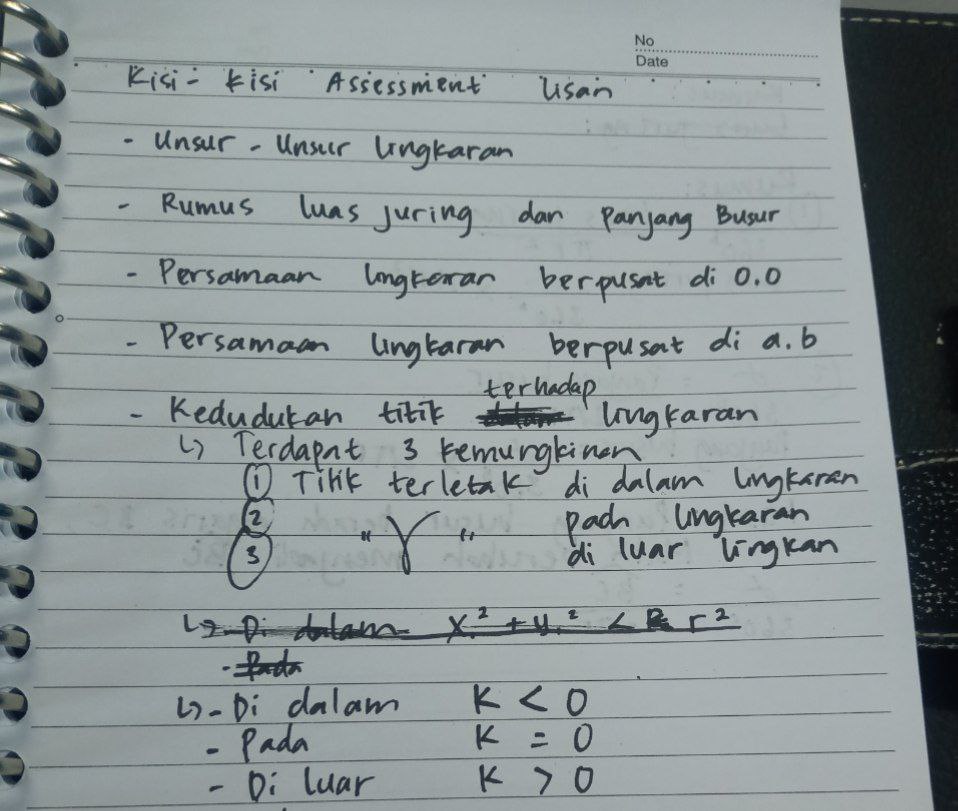 No
Date
Kisi - kisi Assessment Lisan
- Unsur - Unsur lingkaran
- Rumus luas juring dan Panjang Busur
- Persamaan lingkaran berpusat di 0.0
- Persamaan lingkaran berpusat di a.b
terhadap
- Kedudukan titik dalam lingkaran
↳ Terdapat 3 kemungkinan
① Titik terletak di dalam lingkaran
② " " pada lingkaran
③ di luar lingkan
↳ - Di dalam x.² + y.² < R r²
- Pada
↳ - Di dalam K < 0
- Pada K = 0
- Di luar K > 0